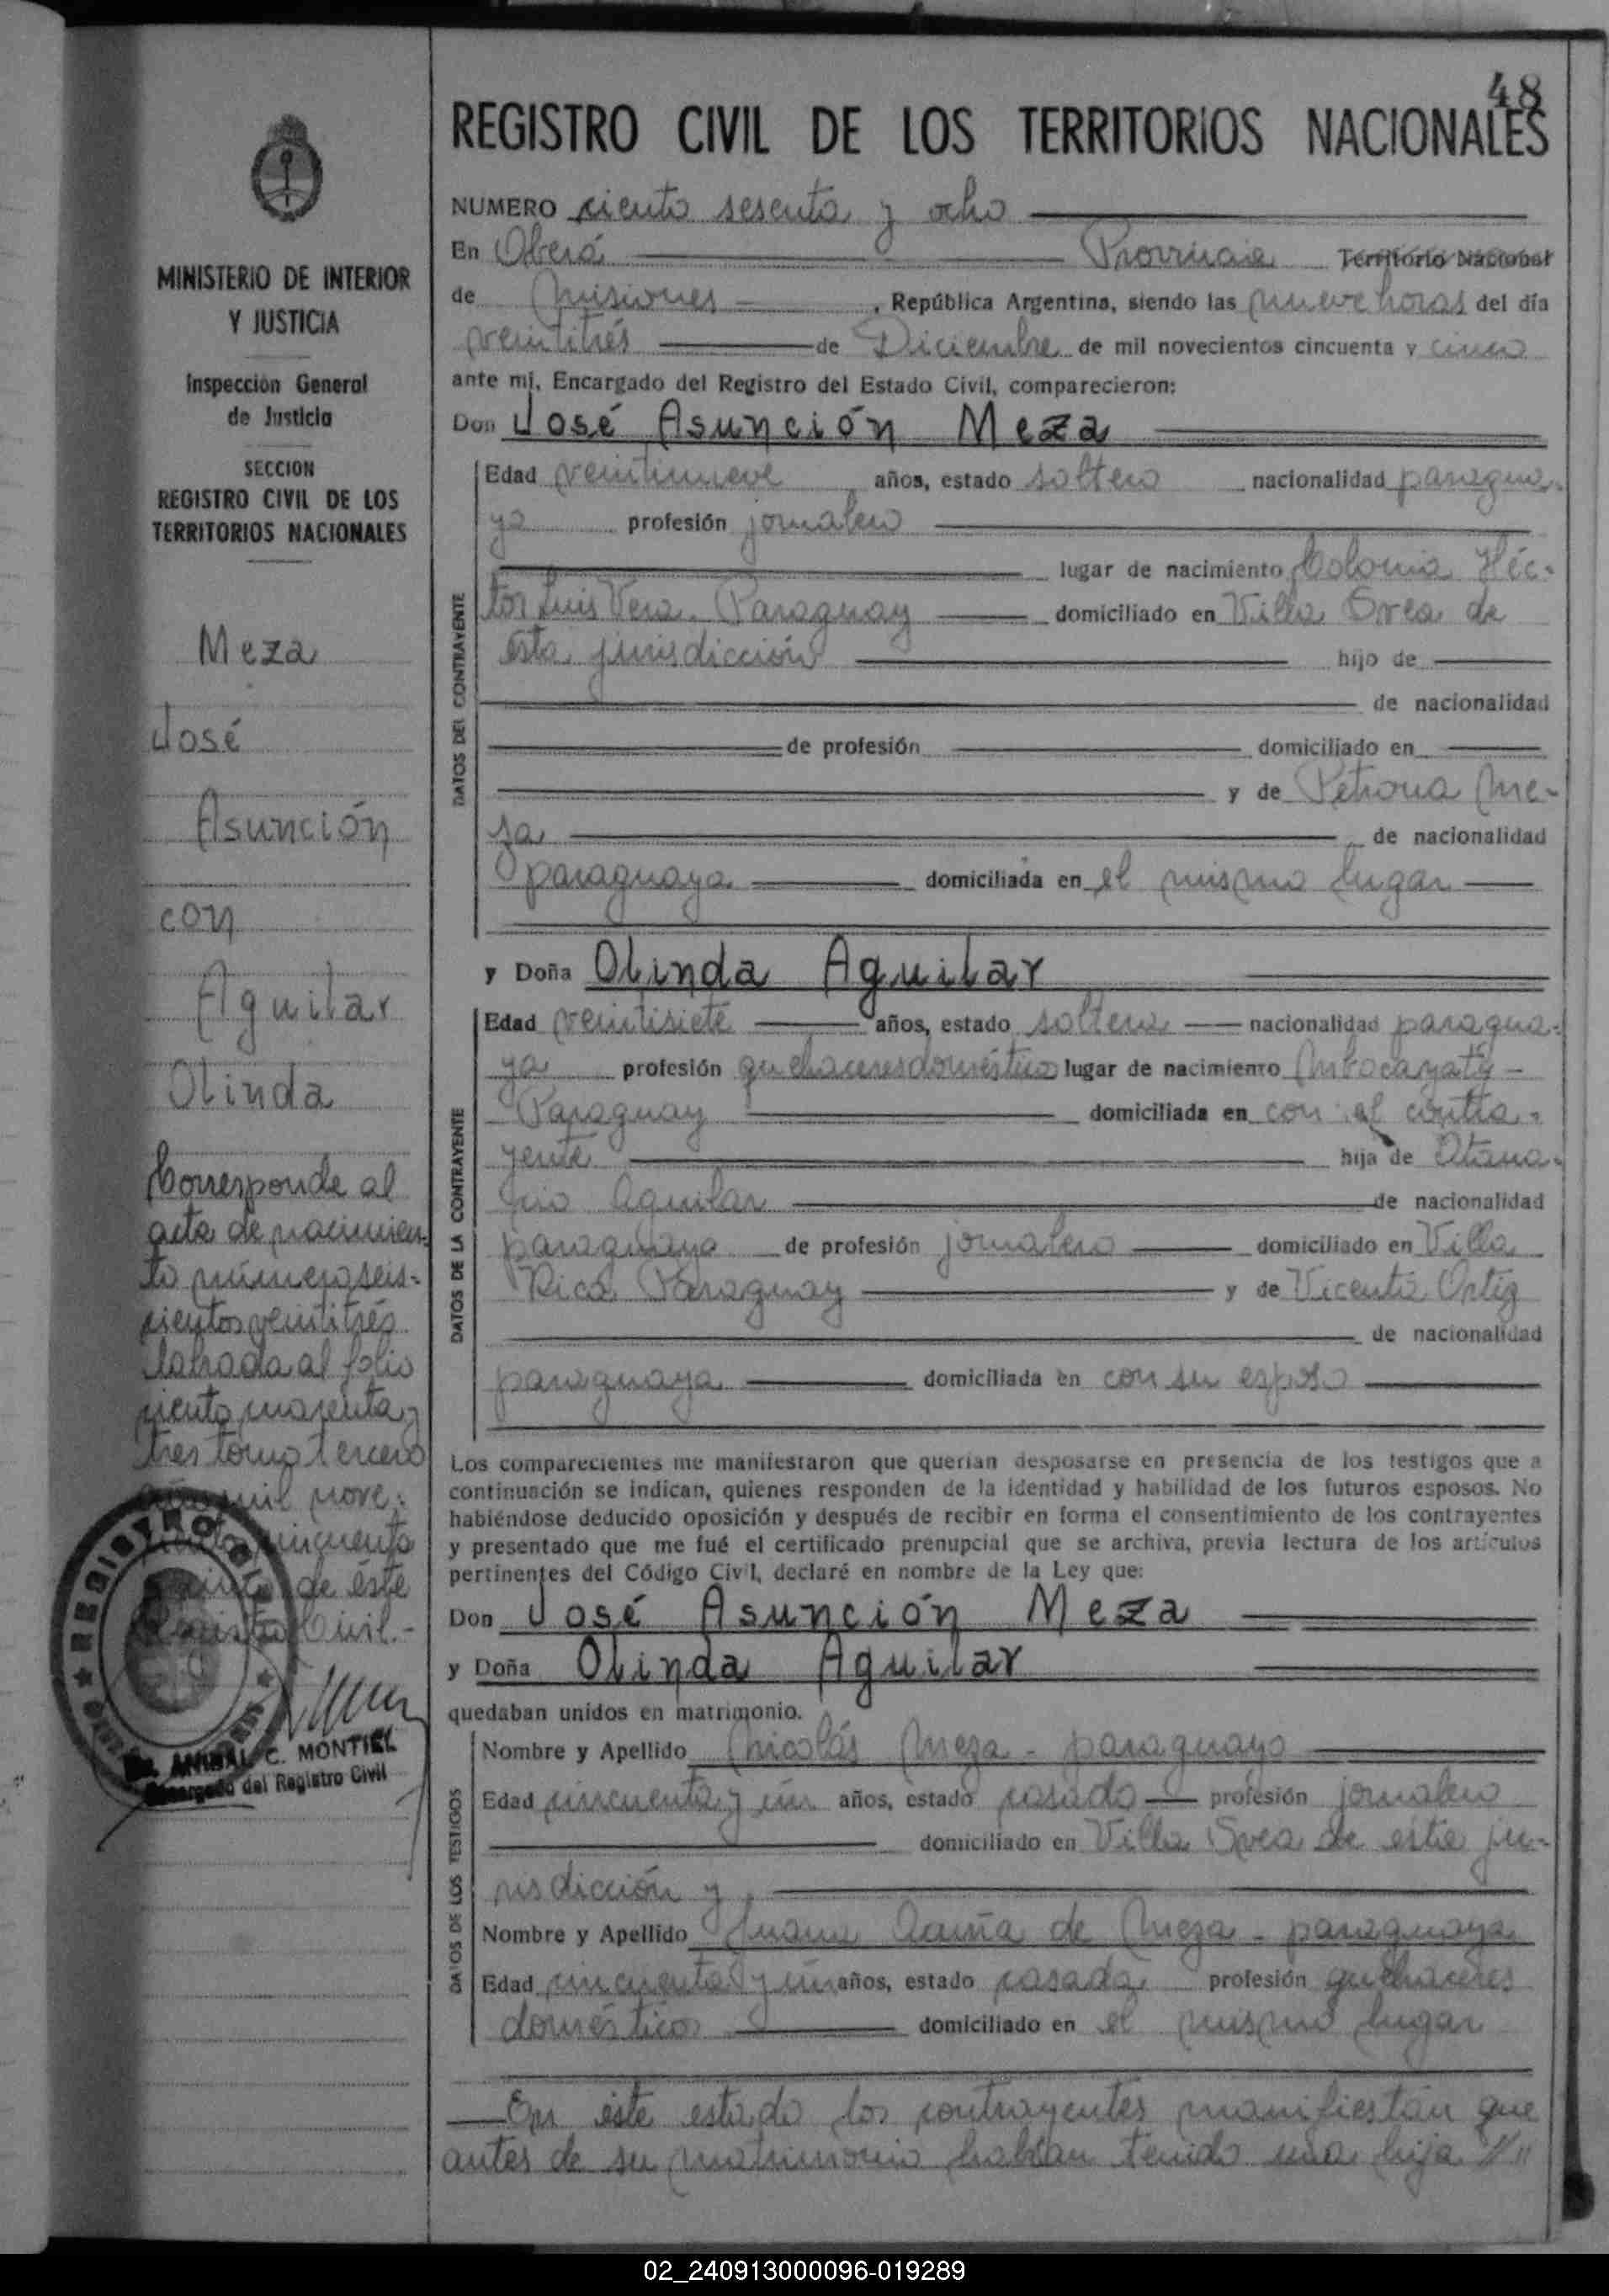 48
REGISTRO CIVIL DE LOS TERRITORIOS NACIONALES
MINISTERIO DE INTERIOR
Y JUSTICIA
Inspección General
de Justicia
SECCION
REGISTRO CIVIL DE LOS
TERRITORIOS NACIONALES
Meza
José
Asunción
con
Aguilar
Olinda
Corresponde al
acta de nacimien-
to número seis-
cientos veintitrés
labrada al folio
ciento cuarenta y
tres tomo tercero
año mil nove-
cientos cincuenta
y cinco de éste
Registro Civil.-
C. MONTIEL
Encargado del Registro Civil
NUMERO ciento sesenta y ocho
En Oberá Provincia Territorio Nacional
de Misiones, República Argentina, siendo las nueve horas del día
veintitrés de Diciembre de mil novecientos cincuenta y cinco
ante mi, Encargado del Registro del Estado Civil, comparecieron:
Don José Asunción Meza
DATOS DEL CONTRAYENTE
Edad veintinueve años, estado soltero nacionalidad paragua-
ya profesión jornalero
lugar de nacimiento Colonia Héc-
tor Luis Vera. Paraguay domiciliado en Villa Svea de
ésta jurisdicción hijo de
de nacionalidad
de profesión domiciliado en
y de Petrona Me-
za de nacionalidad
paraguaya domiciliada en el mismo lugar
y Doña Olinda Aguilar
DATOS DE LA CONTRAYENTE
Edad veintisiete años, estado soltera nacionalidad paragua-
ya profesión quehaceres doméstico lugar de nacimiento Mbocayaty -
Paraguay domiciliada en con el contra-
yente hija de Atana-
cio Aguilar de nacionalidad
paraguaya de profesión jornalero domiciliado en Villa
Rica Paraguay y de Vicenta Ortiz
de nacionalidad
paraguaya domiciliada en con su esposo
Los comparecientes me manifestaron que querían desposarse en presencia de los testigos que a
continuación se indican, quienes responden de la identidad y habilidad de los futuros esposos. No
habiéndose deducido oposición y después de recibir en forma el consentimiento de los contrayentes
y presentado que me fué el certificado prenupcial que se archiva, previa lectura de los artículos
pertinentes del Código Civil, declaré en nombre de la Ley que:
Don José Asunción Meza
y Doña Olinda Aguilar
quedaban unidos en matrimonio.
DATOS DE LOS TESTIGOS
Nombre y Apellido Nicolás Meza - paraguayo
Edad cincuenta y un años, estado casado profesión jornalero
domiciliado en Villa Svea de esta ju-
risdicción y
Nombre y Apellido Juana de Meza - paraguaya
Edad cincuenta y un años, estado casada profesión quehaceres
domésticos domiciliado en el mismo lugar
En éste estado los contrayentes manifiestan que
antes de su matrimonio habían tenido una hija
02_240913000096-019289